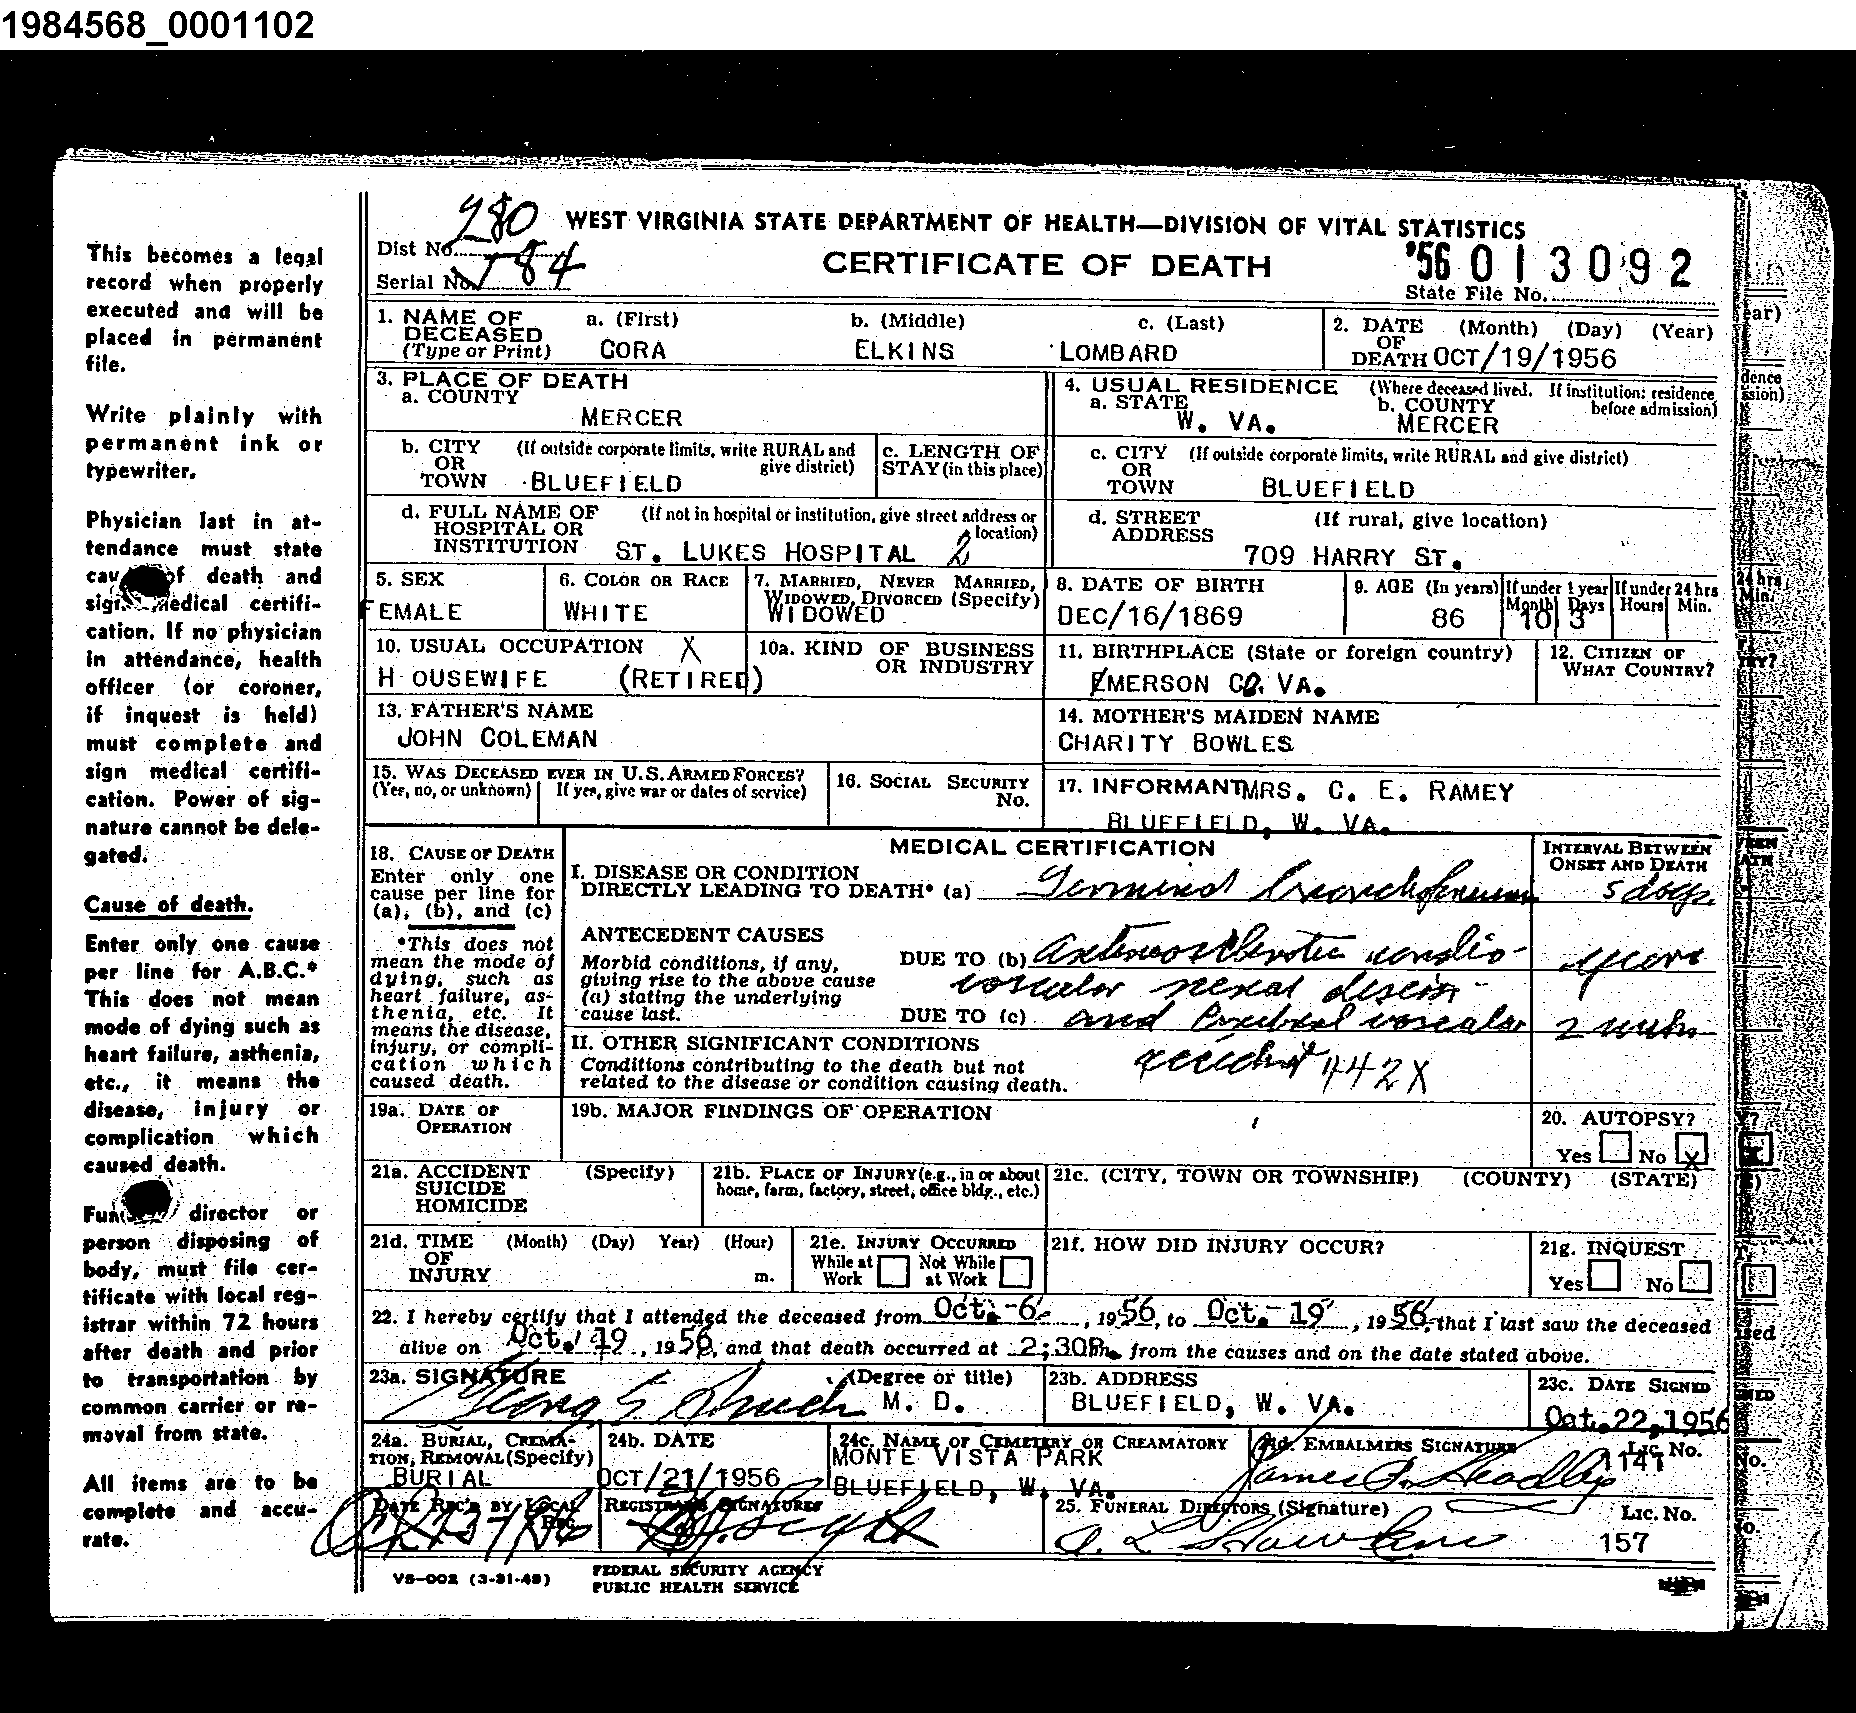 1984568_0001102
This becomes a legal
record when properly
executed and will be
placed in permanent
file.
Write plainly with
permanent ink or
typewriter.
Physician last in at-
tendance must state
of death and
medical certifi-
cation. If no physician
in attendance, health
officer (or coroner,
if inquest is held)
must complete and
sign medical certifi-
cation. Power of sig-
nature cannot be dele-
gated.
Cause of death.
Enter only one cause
per line for A.B.C.*
This does not mean
mode of dying such as
heart failure, asthenia,
etc., it means the
disease, injury or
complication which
caused death.
director or
person disposing of
body, must file cer-
tificate with local reg-
istrar within 72 hours
after death and prior
to transportation by
common carrier or re-
moval from state.
All items are to be
complete and accu-
rate.
280
WEST VIRGINIA STATE DEPARTMENT OF HEALTH—DIVISION OF VITAL STATISTICS
Dist No.
CERTIFICATE OF DEATH
'56 013092
Serial No. 784
State File No.
1. NAME OF DECEASED (Type or Print) a. (First) b. (Middle) c. (Last)
CORA ELKINS LOMBARD
2. DATE OF DEATH (Month) (Day) (Year)
OCT/19/1956
3. PLACE OF DEATH
a. COUNTY
MERCER
4. USUAL RESIDENCE (Where deceased lived. If institution: residence before admission)
a. STATE W. VA. b. COUNTY MERCER
b. CITY OR TOWN (If outside corporate limits, write RURAL and give district)
BLUEFIELD
c. LENGTH OF STAY (in this place)
c. CITY OR TOWN (If outside corporate limits, write RURAL and give district)
BLUEFIELD
d. FULL NAME OF HOSPITAL OR INSTITUTION (If not in hospital or institution, give street address or location)
ST. LUKES HOSPITAL 2
d. STREET ADDRESS (If rural, give location)
709 HARRY ST.
5. SEX
FEMALE
6. COLOR OR RACE
WHITE
7. MARRIED, NEVER MARRIED, WIDOWED, DIVORCED (Specify)
WIDOWED
8. DATE OF BIRTH
DEC/16/1869
9. AGE (In years) If under 1 year If under 24 hrs
Month Days Hours Min.
86 10 3
10. USUAL OCCUPATION X
HOUSEWIFE (RETIRED)
10a. KIND OF BUSINESS OR INDUSTRY
11. BIRTHPLACE (State or foreign country)
EMERSON CO. VA.
12. CITIZEN OF WHAT COUNTRY?
13. FATHER'S NAME
JOHN COLEMAN
14. MOTHER'S MAIDEN NAME
CHARITY BOWLES
15. WAS DECEASED EVER IN U.S. ARMED FORCES?
(Yes, no, or unknown) If yes, give war or dates of service)
16. SOCIAL SECURITY No.
17. INFORMANT MRS. C. E. RAMEY
BLUEFIELD, W. VA.
18. CAUSE OF DEATH
Enter only one
cause per line for
(a), (b), and (c)
*This does not
mean the mode of
dying, such as
heart failure, as-
thenia, etc. It
means the disease,
injury, or compli-
cation which
caused death.
MEDICAL CERTIFICATION
INTERVAL BETWEEN ONSET AND DEATH
I. DISEASE OR CONDITION
DIRECTLY LEADING TO DEATH* (a) Terminal Bronchopneumonia 5 days
ANTECEDENT CAUSES
Morbid conditions, if any,
giving rise to the above cause
(a) stating the underlying
cause last.
DUE TO (b) arteriosclerotic cardio- years
vascular renal disease
DUE TO (c) and Cerebral vascular 2 weeks
accident 442X
II. OTHER SIGNIFICANT CONDITIONS
Conditions contributing to the death but not
related to the disease or condition causing death.
19a. DATE OF OPERATION
19b. MAJOR FINDINGS OF OPERATION
20. AUTOPSY?
Yes No X
21a. ACCIDENT SUICIDE HOMICIDE (Specify)
21b. PLACE OF INJURY (e.g., in or about home, farm, factory, street, office bldg., etc.)
21c. (CITY, TOWN OR TOWNSHIP) (COUNTY) (STATE)
21d. TIME OF INJURY (Month) (Day) Year) (Hour) m.
21e. INJURY OCCURRED
While at Work Not While at Work
21f. HOW DID INJURY OCCUR?
21g. INQUEST
Yes No
22. I hereby certify that I attended the deceased from Oct.-6-, 1956, to Oct.-19, 1956, that I last saw the deceased
alive on Oct. 19, 1956, and that death occurred at 2:30Pm. from the causes and on the date stated above.
23a. SIGNATURE (Degree or title)
M. D.
23b. ADDRESS
BLUEFIELD, W. VA.
23c. DATE SIGNED
Oct.22,1956
24a. BURIAL, CREMATION, REMOVAL (Specify)
BURIAL
24b. DATE
OCT/21/1956
24c. NAME OF CEMETERY OR CREAMATORY
MONTE VISTA PARK
BLUEFIELD, W. VA.
24d. EMBALMERS SIGNATURE Lic. No.
1147
DATE REC'D BY LOCAL REG.
REGISTRARS SIGNATURES
25. FUNERAL DIRECTORS (Signature) LIC. No.
157
VS-002 (3-31-49)
FEDERAL SECURITY AGENCY
PUBLIC HEALTH SERVICE